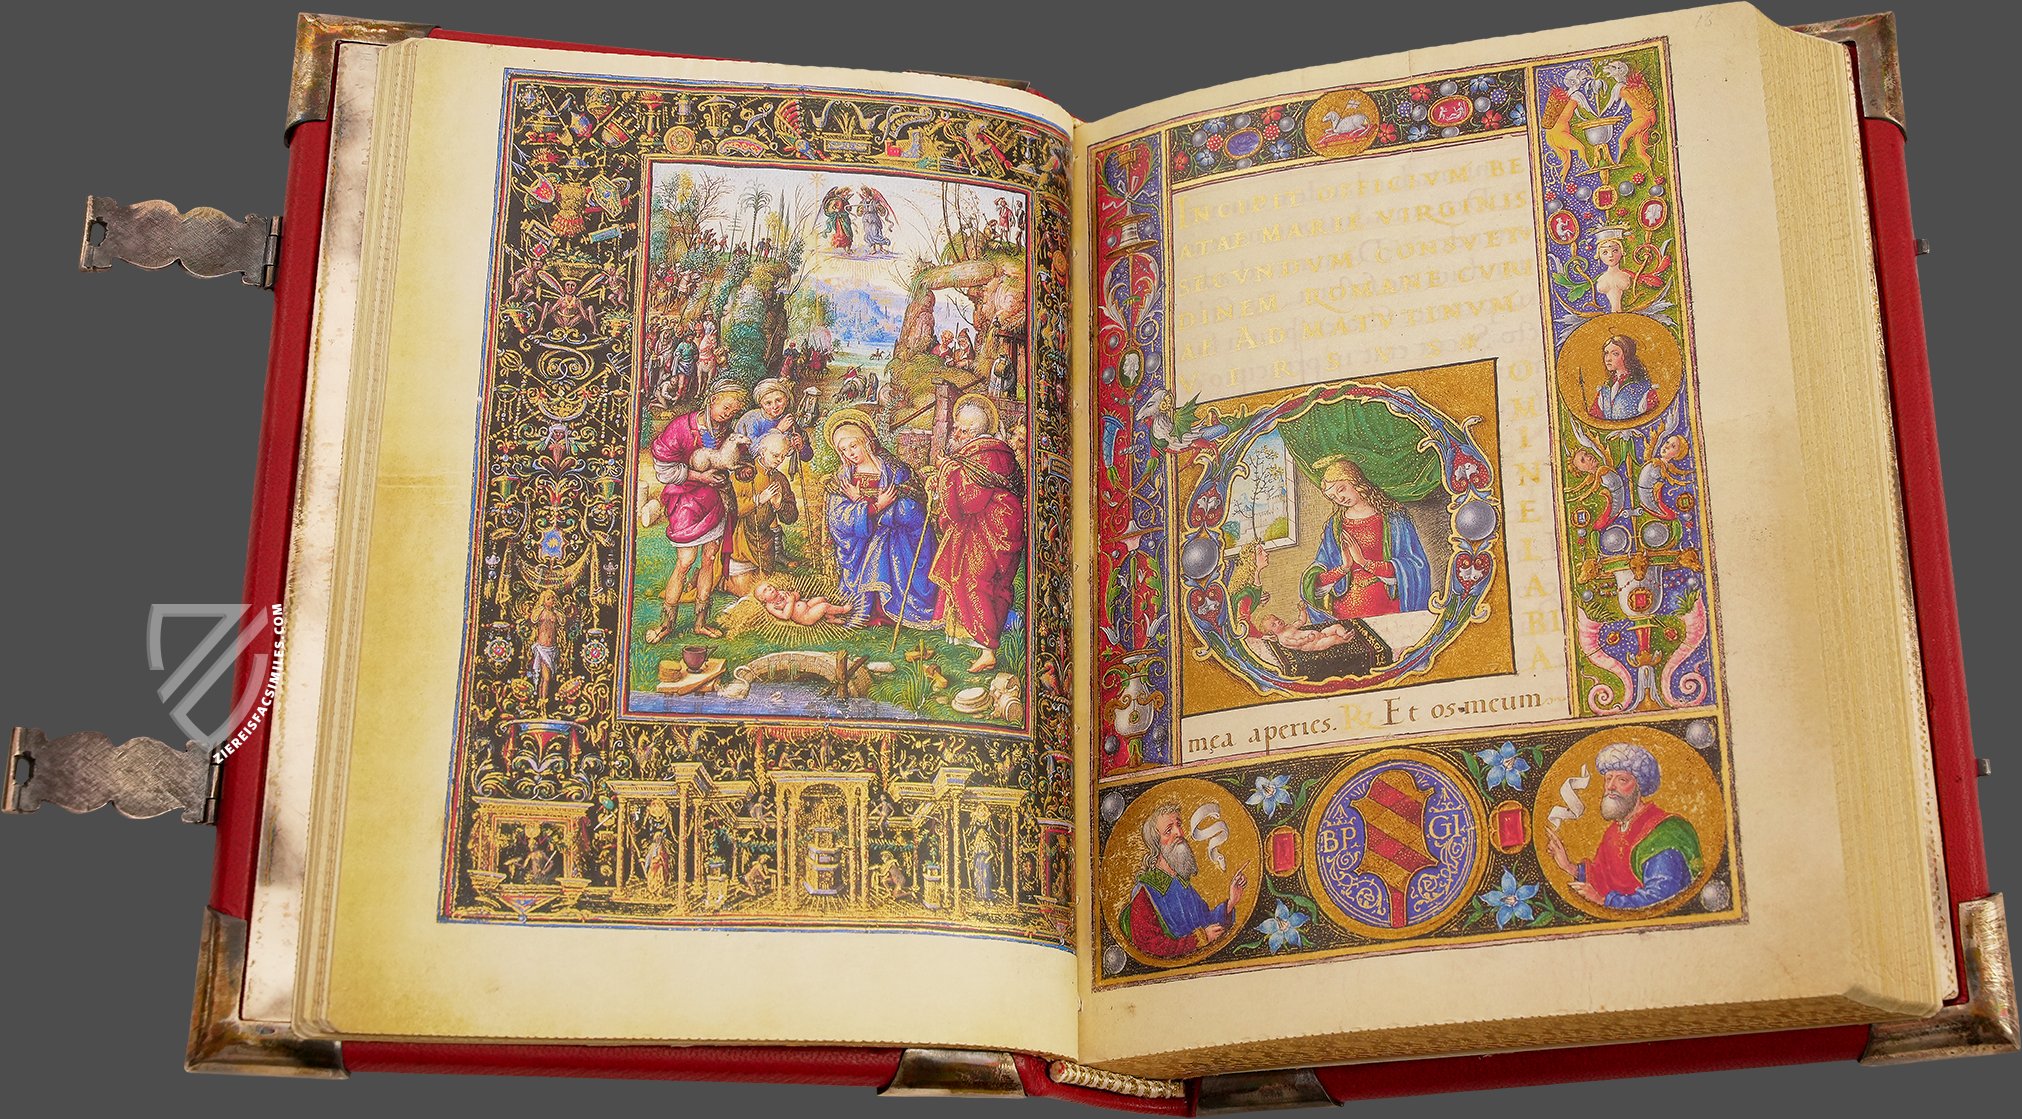 13
INCIPIT OFFICIVM BE
ATAE MARIE VIRGINIS
SECVNDVM CONSVET
DINEM ROMANE CVRI
AE AD MATVTINVM
VERSVS
OMINE LABIA
męa aperies. R. Et os meum
BP. GI.
ZIEREISFACSIMILES.COM